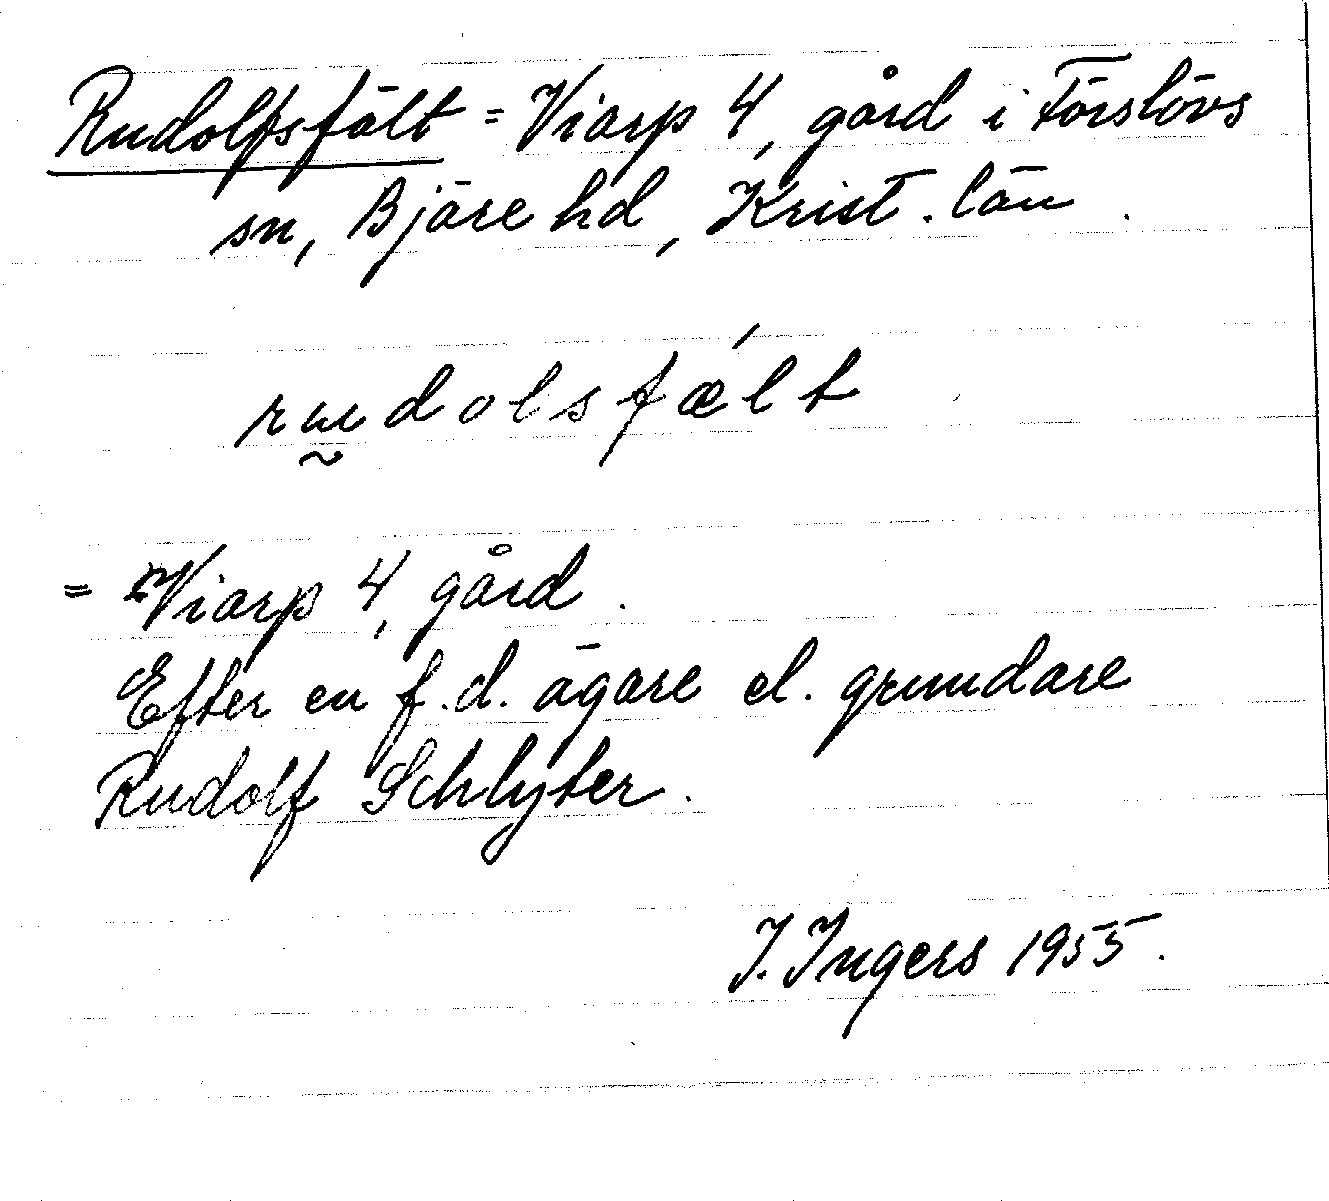 Rudolfsfält = Viarp 4, gård i Förslövs
sn, Bjäre hd, Krist. län.
rudolsfælt
= Viarp 4, gård.
Efter en f.d. ägare el. grundare
Rudolf Schlyter.
I. Ingers 1955.